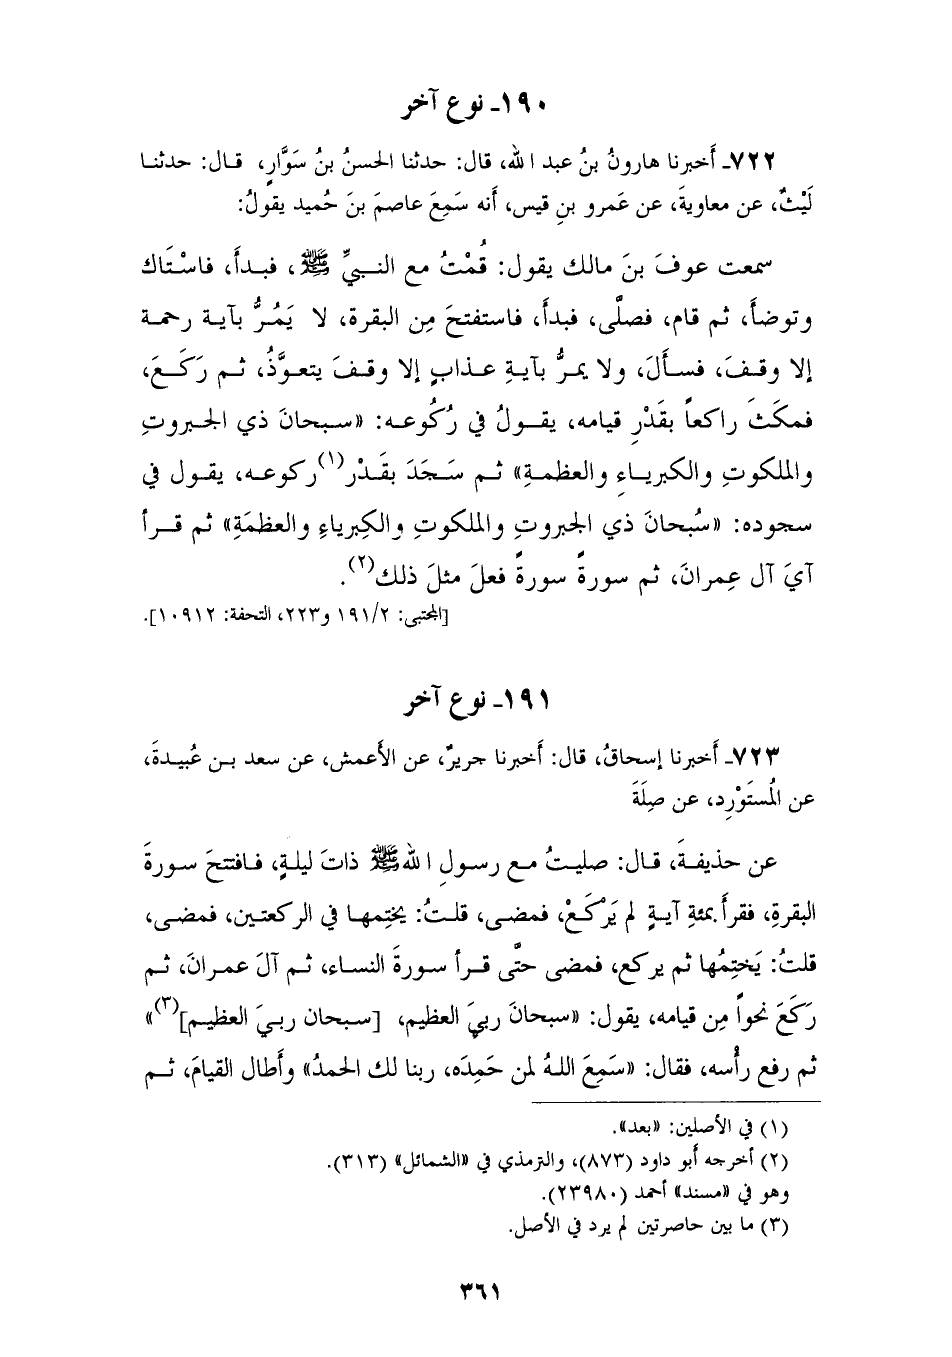 ١٩٠ـ نوع آخر
٧٢٢ـ أخبرنا هارونُ بنُ عبد الله، قال: حدثنا الحسنُ بنُ سَوَّارٍ، قال: حدثنا
لَيْثٌ، عن معاويةَ، عن عَمرو بنِ قيس، أنه سَمِعَ عاصمَ بنَ حُميد يقولُ:
سمعت عوفَ بنَ مالك يقول: قُمْتُ مع النبيِّ ﷺ، فبدأَ، فاسْتَاك
وتوضأَ، ثم قام، فصلَّى، فبدأَ، فاستفتحَ مِن البقرة، لا يَمُرُّ بآية رحمة
إلا وقفَ، فسألَ، ولا يمرُّ بآيةِ عذابٍ إلا وقفَ يتعوَّذُ، ثم رَكَعَ،
فمكَثَ راكعاً بقَدْرِ قيامه، يقولُ في رُكُوعه: «سبحانَ ذي الجبروتِ
والملكوتِ والكبرياءِ والعظمةِ» ثم سَجَدَ بقَدْر(١) ركوعه، يقول في
سجوده: «سُبحانَ ذي الجبروتِ والملكوتِ والكِبرياءِ والعظمَةِ» ثم قرأ
آيَ آل عِمرانَ، ثم سورةً سورةً فعلَ مثلَ ذلك(٢).
[المجتبى: ١٩١/٢ و٢٢٣، التحفة: ١٠٩١٢].
١٩١ـ نوع آخر
٧٢٣ـ أخبرنا إسحاقُ، قال: أخبرنا جريرٌ، عن الأعمش، عن سعد بن عُبيدةَ،
عن المُستَوْرِد، عن صِلَةَ
عن حذيفةَ، قال: صليتُ مع رسولِ الله ﷺ ذاتَ ليلةٍ، فافتتحَ سورةَ
البقرةِ، فقرأَ بمئةِ آيةٍ لم يَرْكَعْ، فمضى، قلتُ: يختِمها في الركعتين، فمضى،
قلتُ: يَختِمُها ثم يركع، فمضى حتَّى قرأ سورةَ النساء، ثم آلَ عمرانَ، ثم
رَكَعَ نحواً مِن قيامه، يقول: «سبحانَ ربيَ العظيم، [سبحان ربيَ العظيم](٣)»
ثم رفع رأْسه، فقال: «سَمِعَ اللهُ لمن حَمِدَه، ربنا لك الحمدُ» وأَطال القيامَ، ثم
(١) في الأصلين: «بعد».
(٢) أخرجه أبو داود (٨٧٣)، والترمذي في «الشمائل» (٣١٣).
وهو في «مسند» أحمد (٢٣٩٨٠).
(٣) ما بين حاصرتين لم يرد في الأصل.
٣٦١